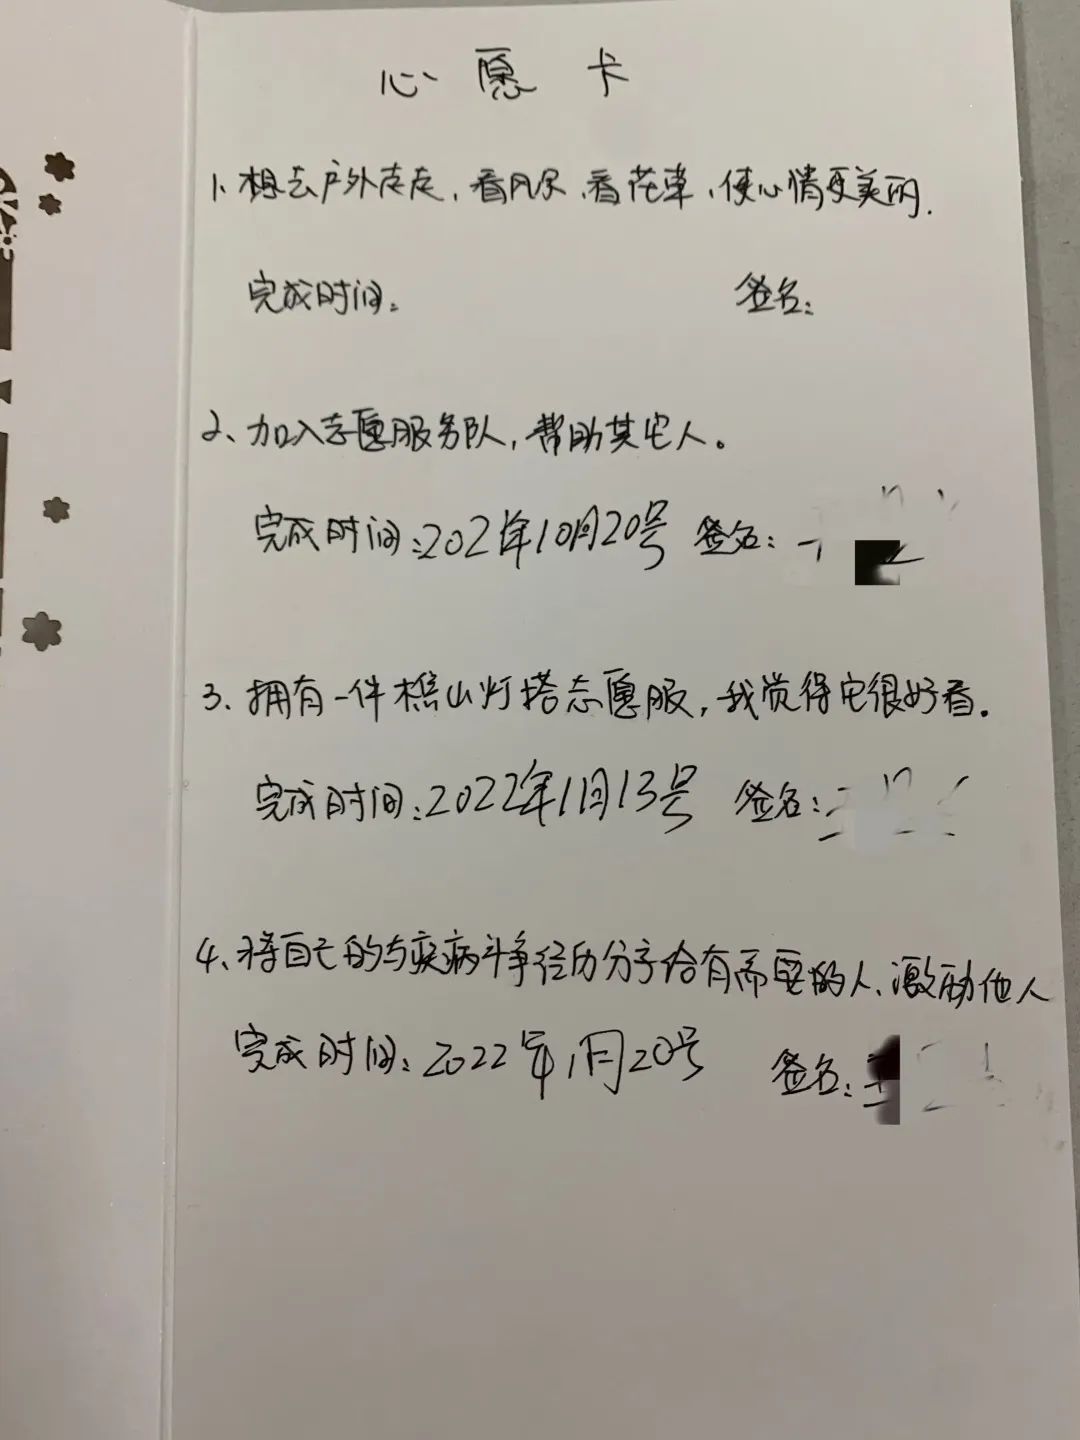 心愿卡
1、想去户外走走，看风景，看花草，使心情更美丽.
完成时间： 签名：
2、加入志愿服务队，帮助其它人。
完成时间：2021年10月20号 签名：
3、拥有一件樵山灯塔志愿服，我觉得它很好看。
完成时间：2022年1月13号 签名：
4、将自己的与疾病斗争经历分享给有需要的人、激励他人
完成时间：2022年1月20号 签名：